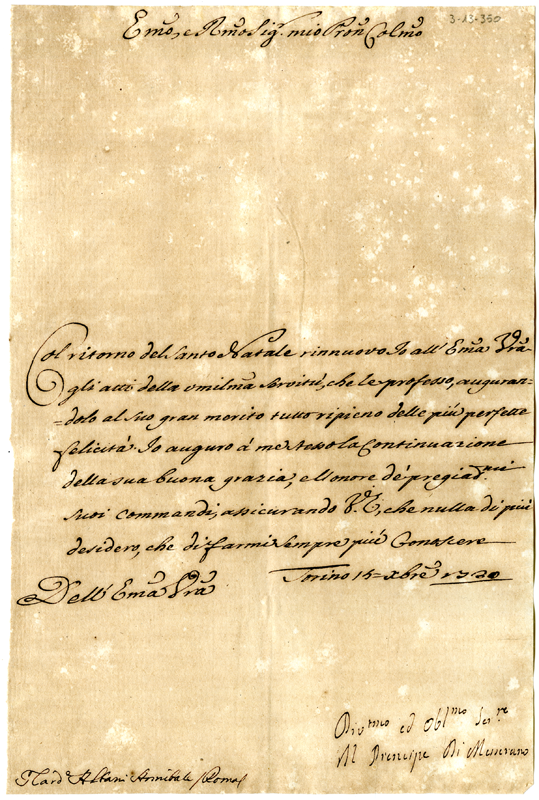 3-13-350
Em̃o, e Rm̃o Sig.r mio Pron̄ Colm̃o
Col ritorno del Santo Natale rinnuovo Io all' Em̃a Vr̃a
gli atti della umilm̃a Servitù, che le professo, auguran=
=dolo al suo gran merito tutto ripieno delle più perfette
felicità. Io auguro à me stesso la Continuazione
della sua buona grazia, e l'onore de' pregiat.mi
suoi commandi, assicurando V.E, che nulla di più
desidero, che di farmi sempre più Conoscere
Dell' Em̃a Vr̃a Torino 15= Xbre
Div.mo ed Obl.mo Ser.re
Il Prencipe Di Messerano
Card.e Albani Annibale Roma